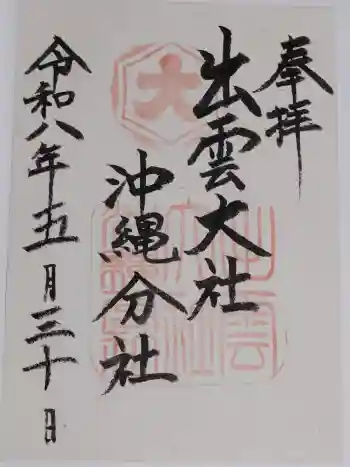 奉拝
出雲大社
沖縄分社
令和八年五月三十日
大